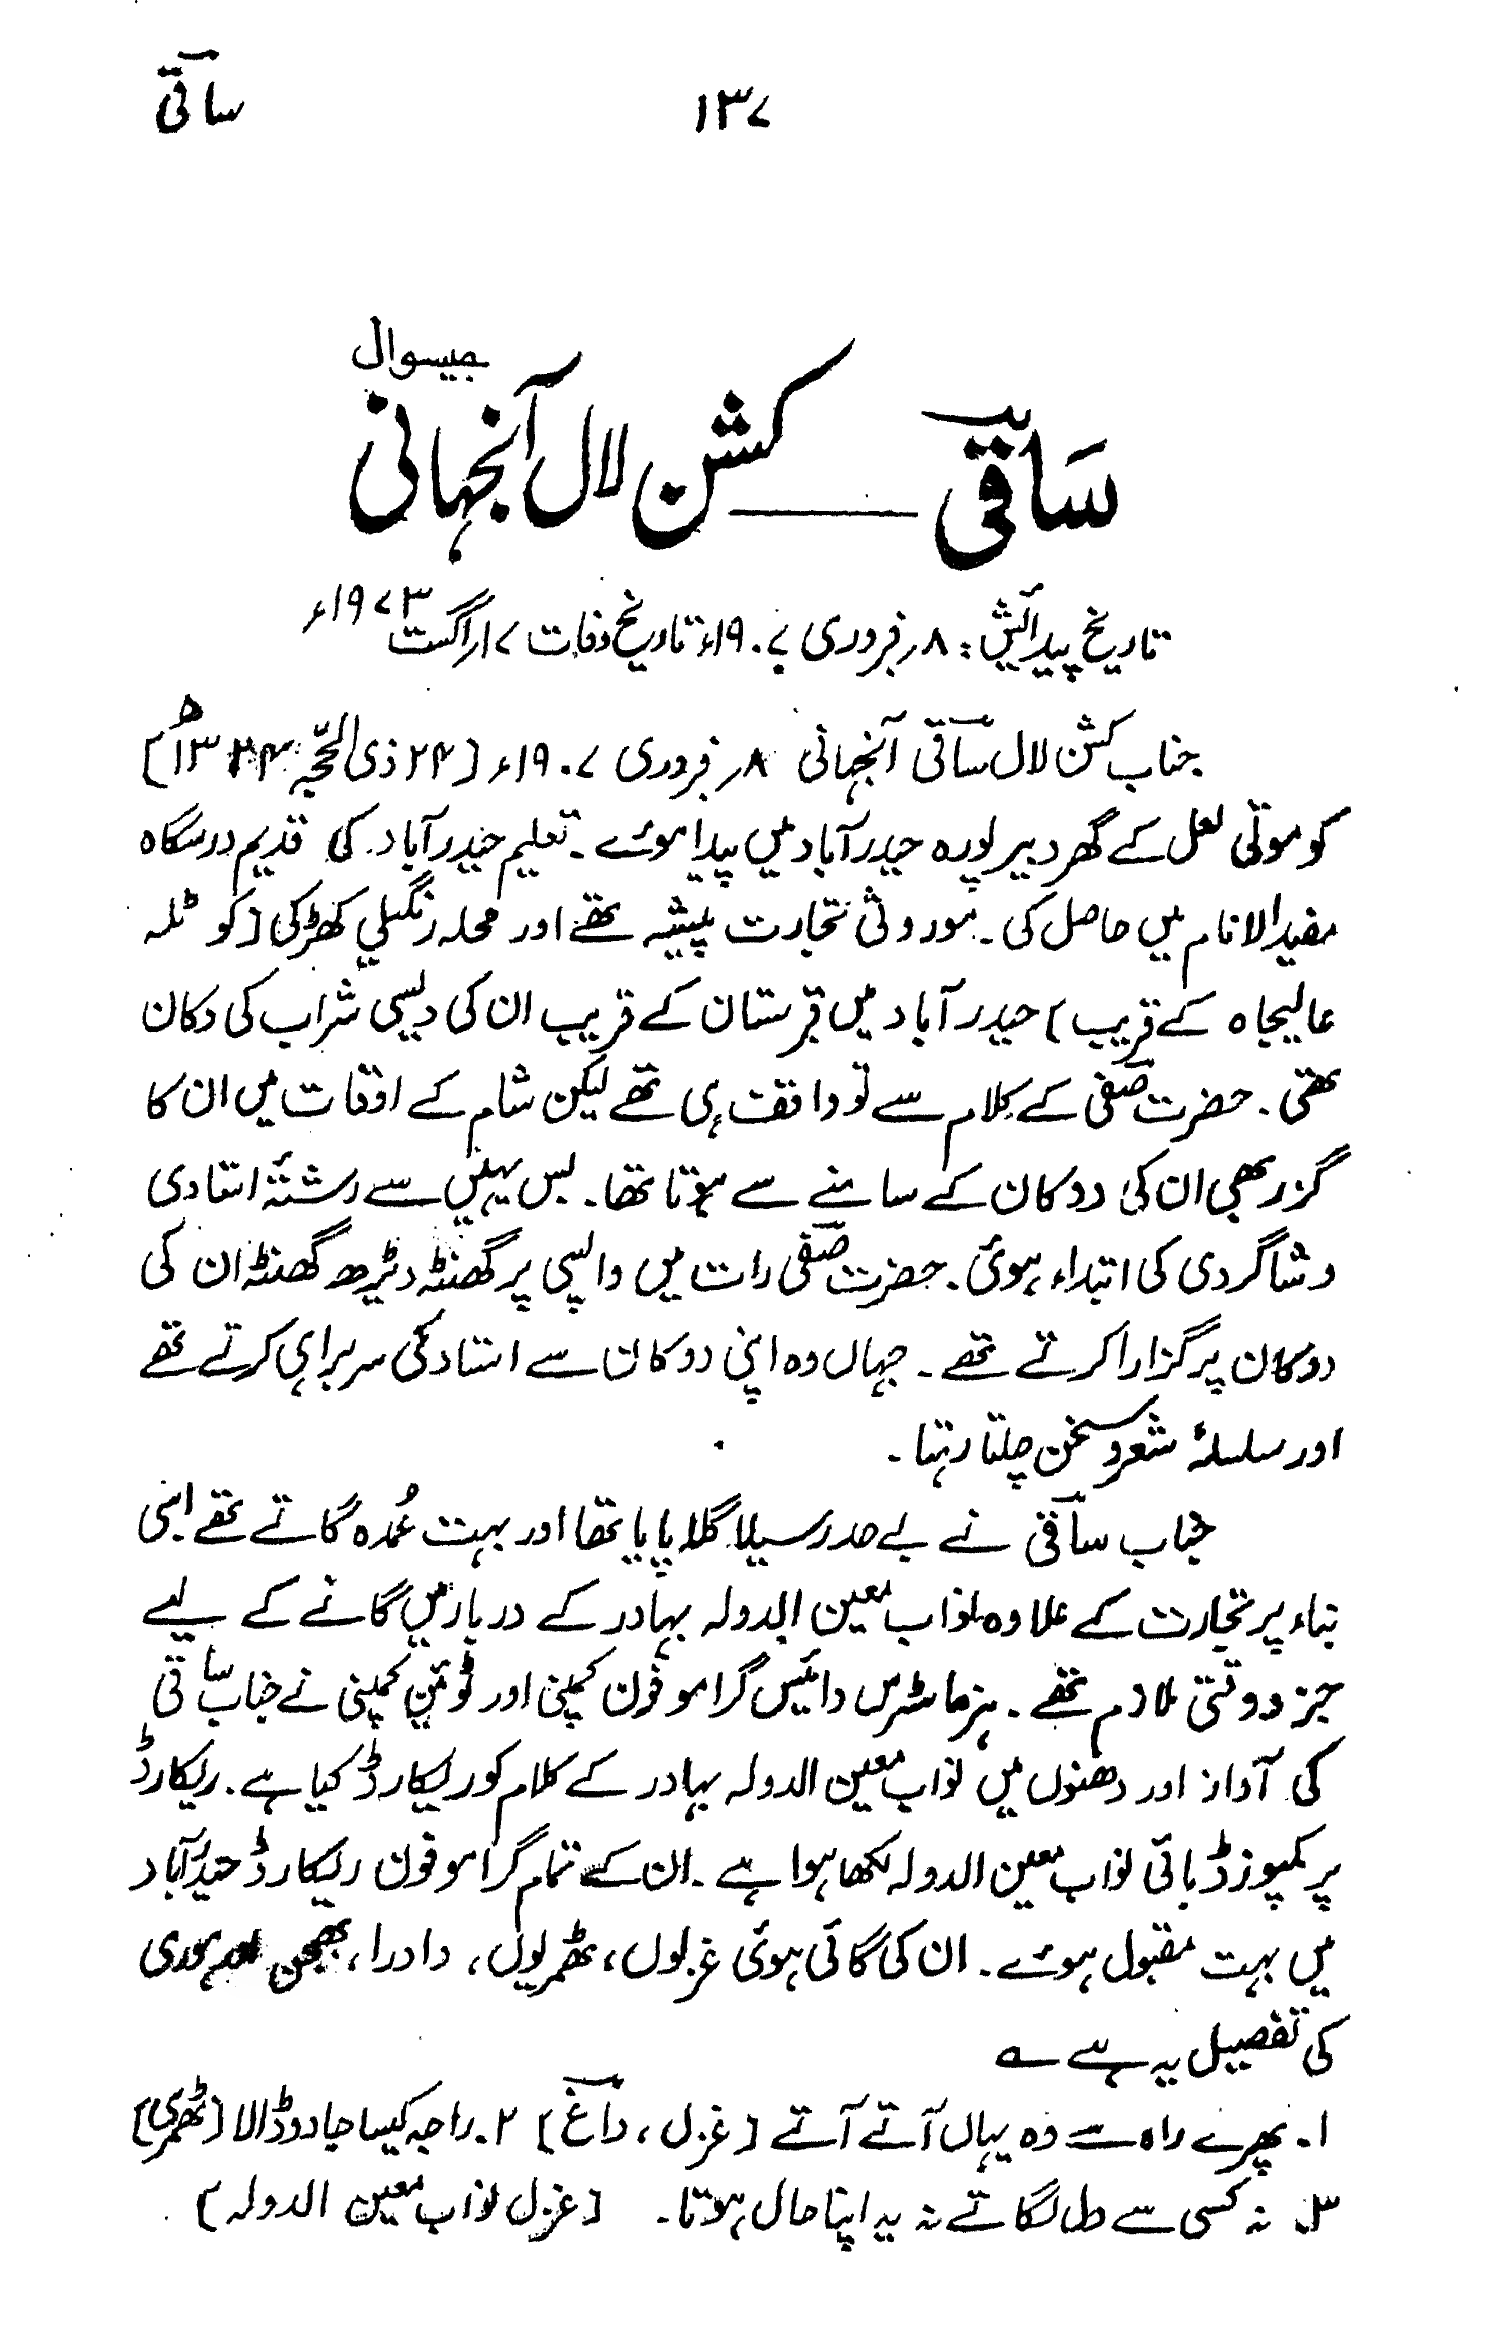 ۱۳۷ ساقی
جیسوال
ساقی ـــــ کشن لال آنجہانی
تاریخ پیدائش: ۸ر فروری ۱۹۰۷ء تاریخ وفات ۱۷ر اگست ۱۹۷۳ء
جناب کشن لال ساقی آنجہانی ۸ر فروری ۱۹۰۷ء [۲۴ ذی الحجہ ۱۳۲۴ھ]
کو موتی لعل کے گھر دبیر پورہ حیدرآباد میں پیدا ہوئے۔ تعلیم حیدرآباد کی قدیم درسگاہ
مفید الانام میں حاصل کی۔ موروثی تجارت پیشہ تھے اور محلہ رنگیلی کھڑکی [کوٹلہ
عالیجاہ کے قریب] حیدرآباد میں قبرستان کے قریب ان کی دیسی شراب کی دکان
تھی۔ حضرت صفی کے کلام سے تو واقف ہی تھے لیکن شام کے اوقات میں ان کا
گزر بھی ان کی دوکان کے سامنے سے ہوتا تھا۔ بس یہیں سے رشتۂ استادی
و شاگردی کی ابتداء ہوئی۔ حضرت صفی رات میں واپسی پر گھنٹہ دیڑھ گھنٹہ ان کی
دوکان پر گزارا کرتے تھے۔ جہاں وہ اپنی دوکان سے استاد کی سربراہی کرتے تھے
اور سلسلۂ شعر و سخن چلتا رہتا۔
جناب ساقی نے بے حد رسیلا گلا پایا تھا اور بہت عُمدہ گاتے تھے اسی
بناء پر تجارت کے علاوہ نواب معین الدولہ بہادر کے دربار میں گانے کے لیے
جز وقتی ملازم تھے۔ ہز ماسٹرس وائیس گراموفون کمپنی اور ٹوئین کمپنی نے جناب ساقی
کی آواز اور دھنوں میں نواب معین الدولہ بہادر کے کلام کو ریکارڈ کیا ہے۔ ریکارڈ
پر کمپوزڈ بائی نواب معین الدولہ لکھا ہوا ہے۔ ان کے تمام گراموفون ریکارڈ حیدرآباد
میں بہت مقبول ہوئے۔ ان کی گائی ہوئی غزلوں، ٹھمریوں، دادرا، بھجن اور ہوری
کی تفصیل یہ ہے ؎
۱۔ پھرے راہ سے وہ یہاں آتے آتے [غزل، داغ] ۲۔ راجہ کیسا جادو ڈالا [ٹھمری]
۳۔ نہ کسی سے دل لگاتے نہ یہ اپنا حال ہوتا۔ [غزل نواب معین الدولہ]